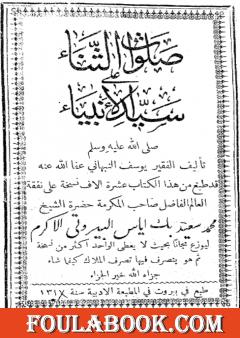 صلوات الثناء
على
سيد الأنبياء
صلى الله عليه وسلم
تأليف الفقير يوسف النبهاني عفا الله عنه
قد طبع من هذا الكتاب عشرة الاف نسخة على نفقة
العالم الفاضل صاحب المكرمة حضرة الشيخ
محمد سعيد بك اياس البيروتي الاكرم
ليوزع مجانا بحيث لا يعطى الواحد أكثر من نسخة
ثم هو يتصرف فيها تصرف الملاك كيفما شاء
جزاه الله خير الجزاء
طبع في بيروت في المطبعة الادبية سنة ١٣١٧
FOULABOOK.COM